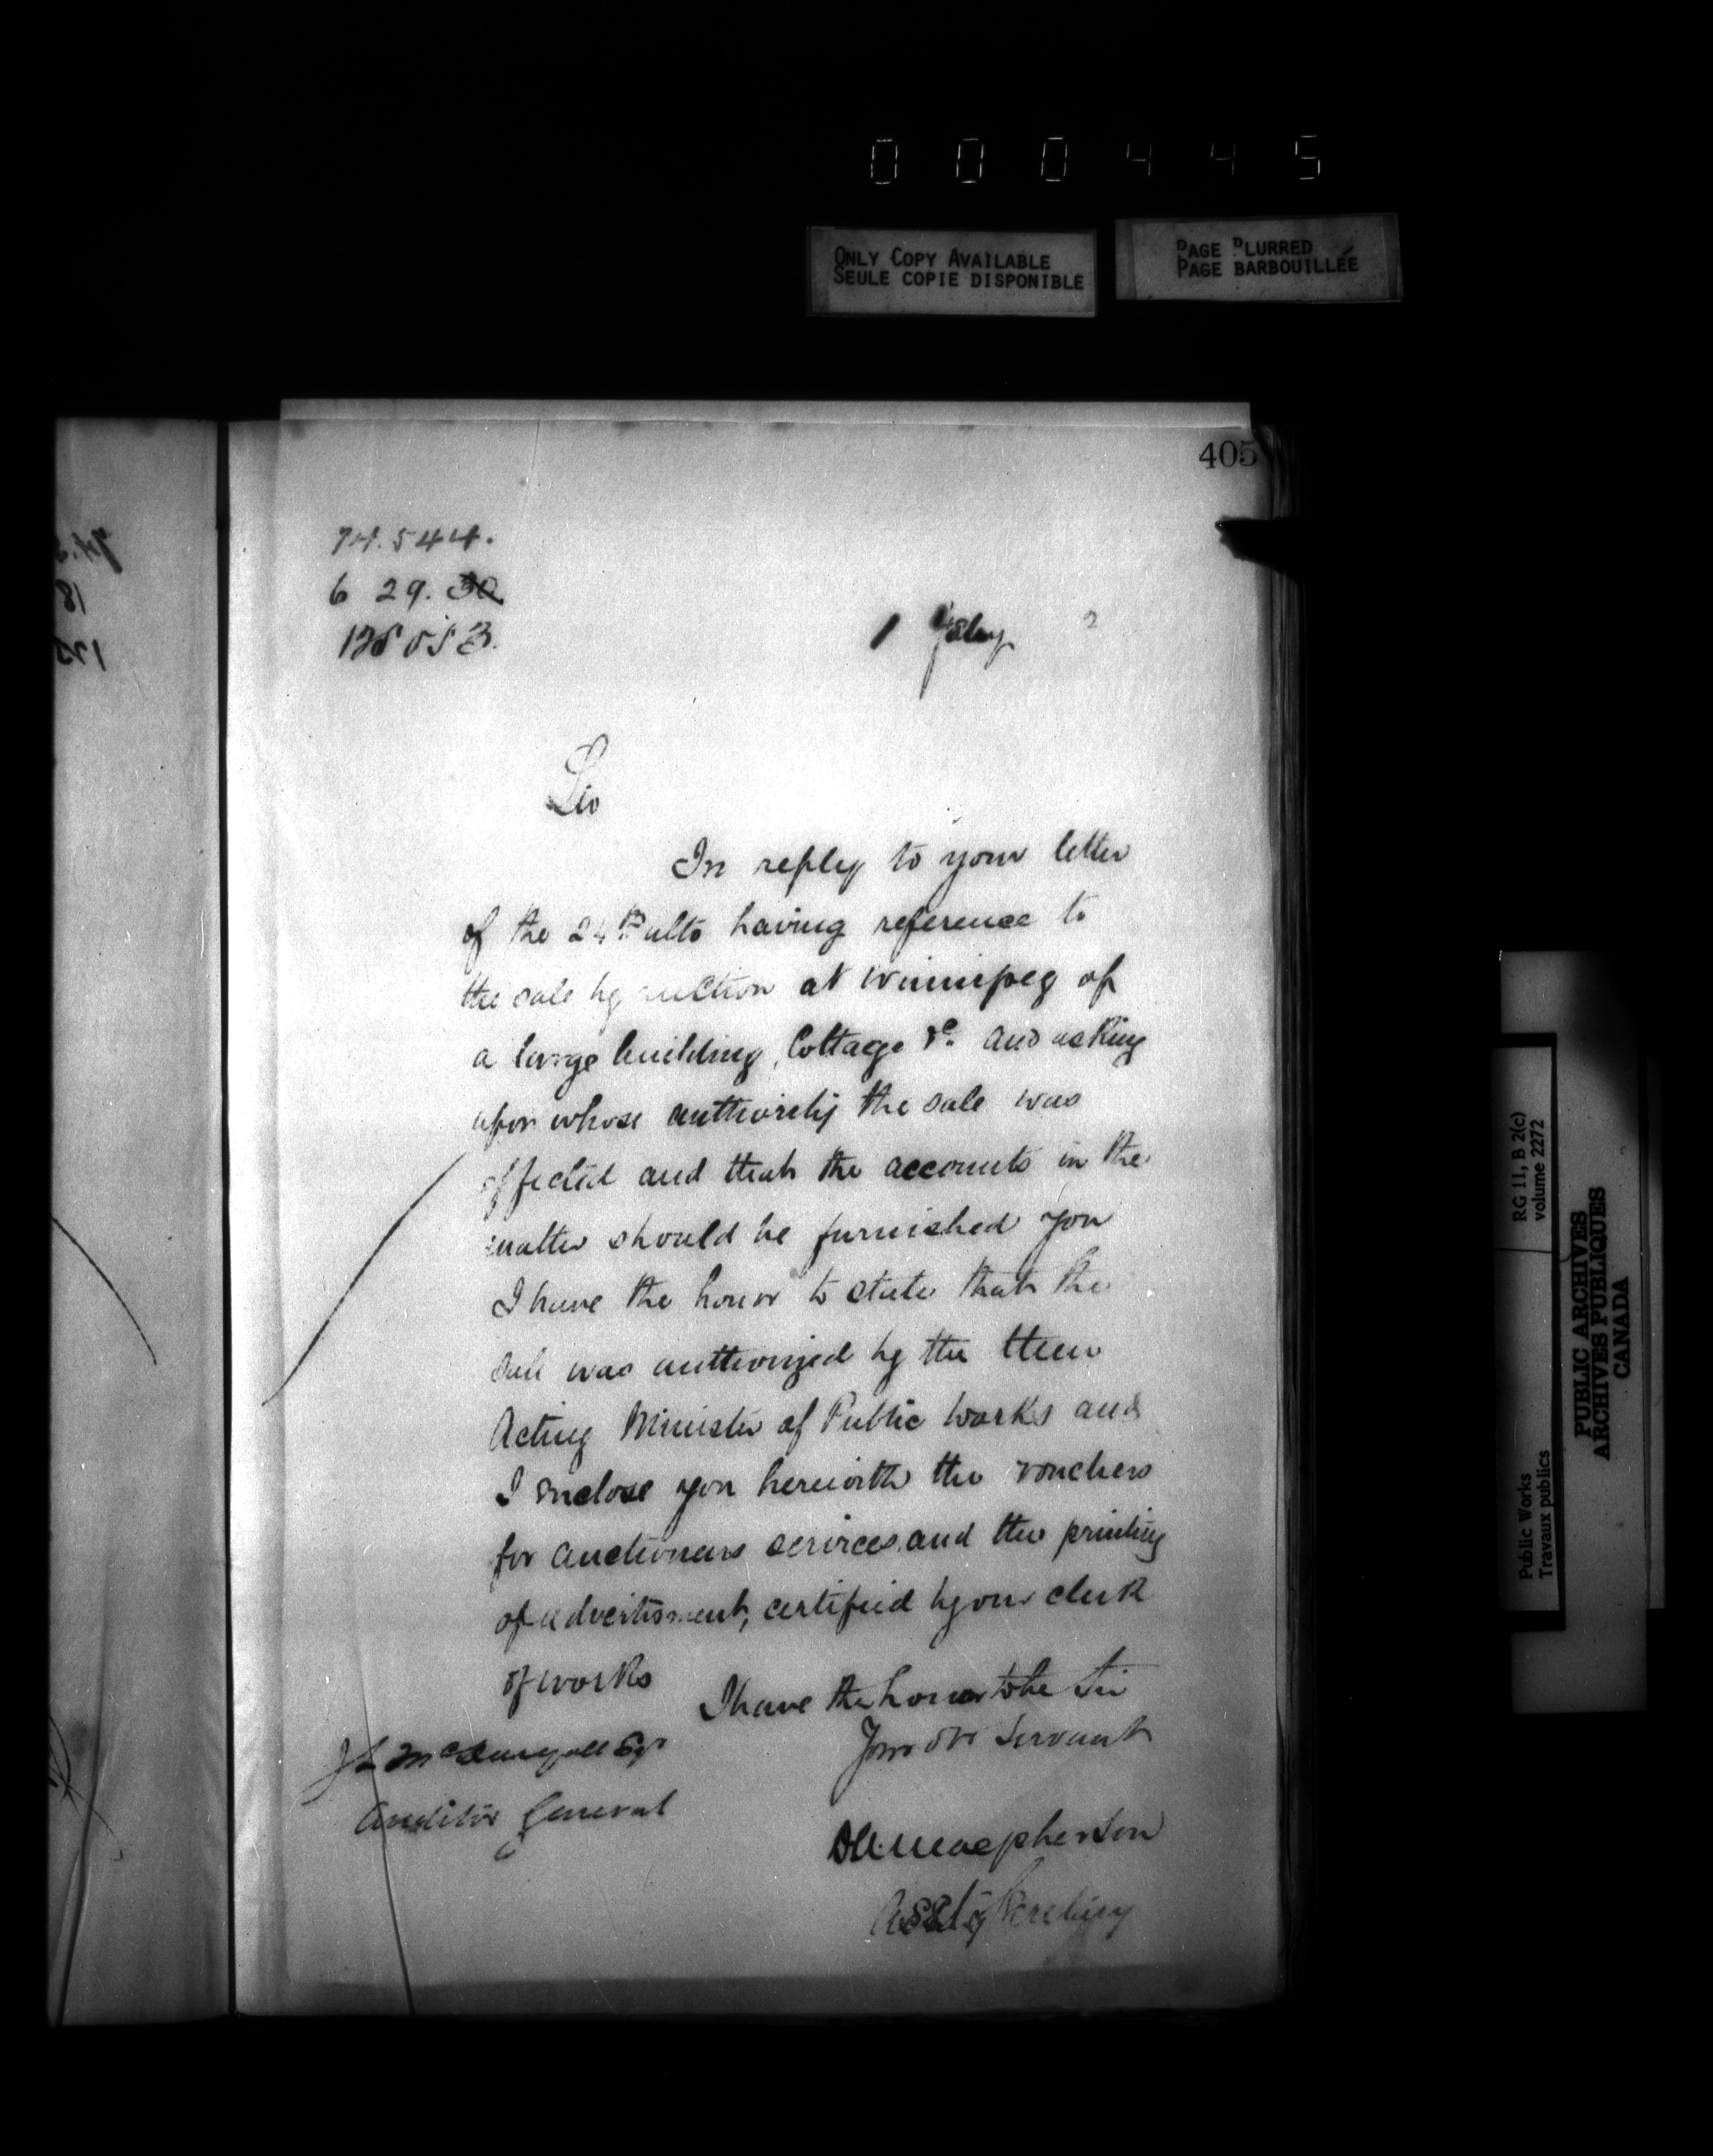 000445
ONLY COPY AVAILABLE
SEULE COPIE DISPONIBLE
PAGE BLURRED
PAGE BARBOUILLÉE
405
74.544.
6 29. 30
1 Feby 2
Sir
In reply to your letter
of the 24th ulto having reference to
the sale by auction at Winnipeg of
a large building, Cottage &c. and asking
upon whose authority the sale was
effected and that the accounts in the
matter should be furnished you
I have the honor to state that the
sale was authorized by the then
Acting Minister of Public Works and
I enclose you herewith the vouchers
for auctioneers services and the printing
of advertisment, certified by our clerk
of works
I have the honor to be Sir
Your Obt Servant
J L McDougall Esqr
Auditor General
Macpherson
Asst Secretary
RG 11, B 2(c)
volume 2272
Public Works
Travaux publics
PUBLIC ARCHIVES
ARCHIVES PUBLIQUES
CANADA